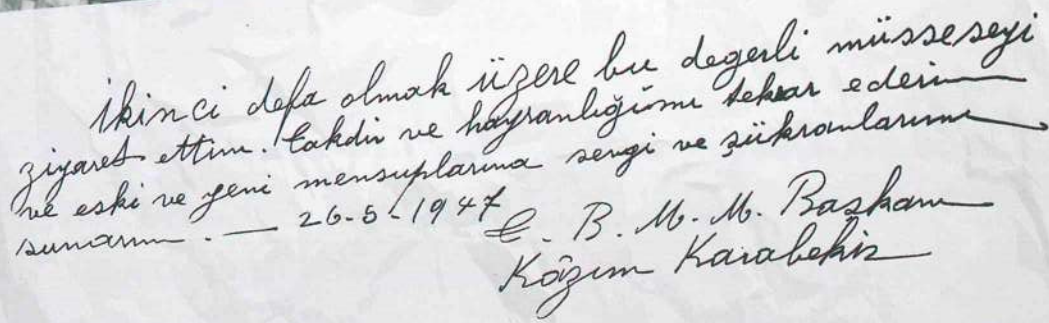 İkinci defa olmak üzere bu değerli müsseseyi
ziyaret ettim. Takdir ve hayranlığımı tekrar ederim
ve eski ve yeni mensuplarına sevgi ve şükranlarımı
sunarım. — 26-5-1947
T. B. M. M. Başkanı
Kâzım Karabekir